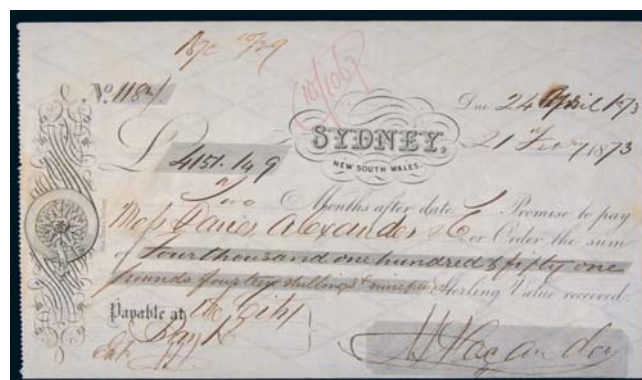 Bye 10/29
(10/106)
No. 1182/.
Due 24 April 1873
SYDNEY,
NEW SOUTH WALES.
21st Feby 1873
£ 4151.14.9
Two Months after date I Promise to pay
Messrs Davies Alexander & Co or Order the sum
of Four thousand one hundred & fifty one
pounds fourteen shillings & ninepence Sterling Value received
Payable at the City
Bank